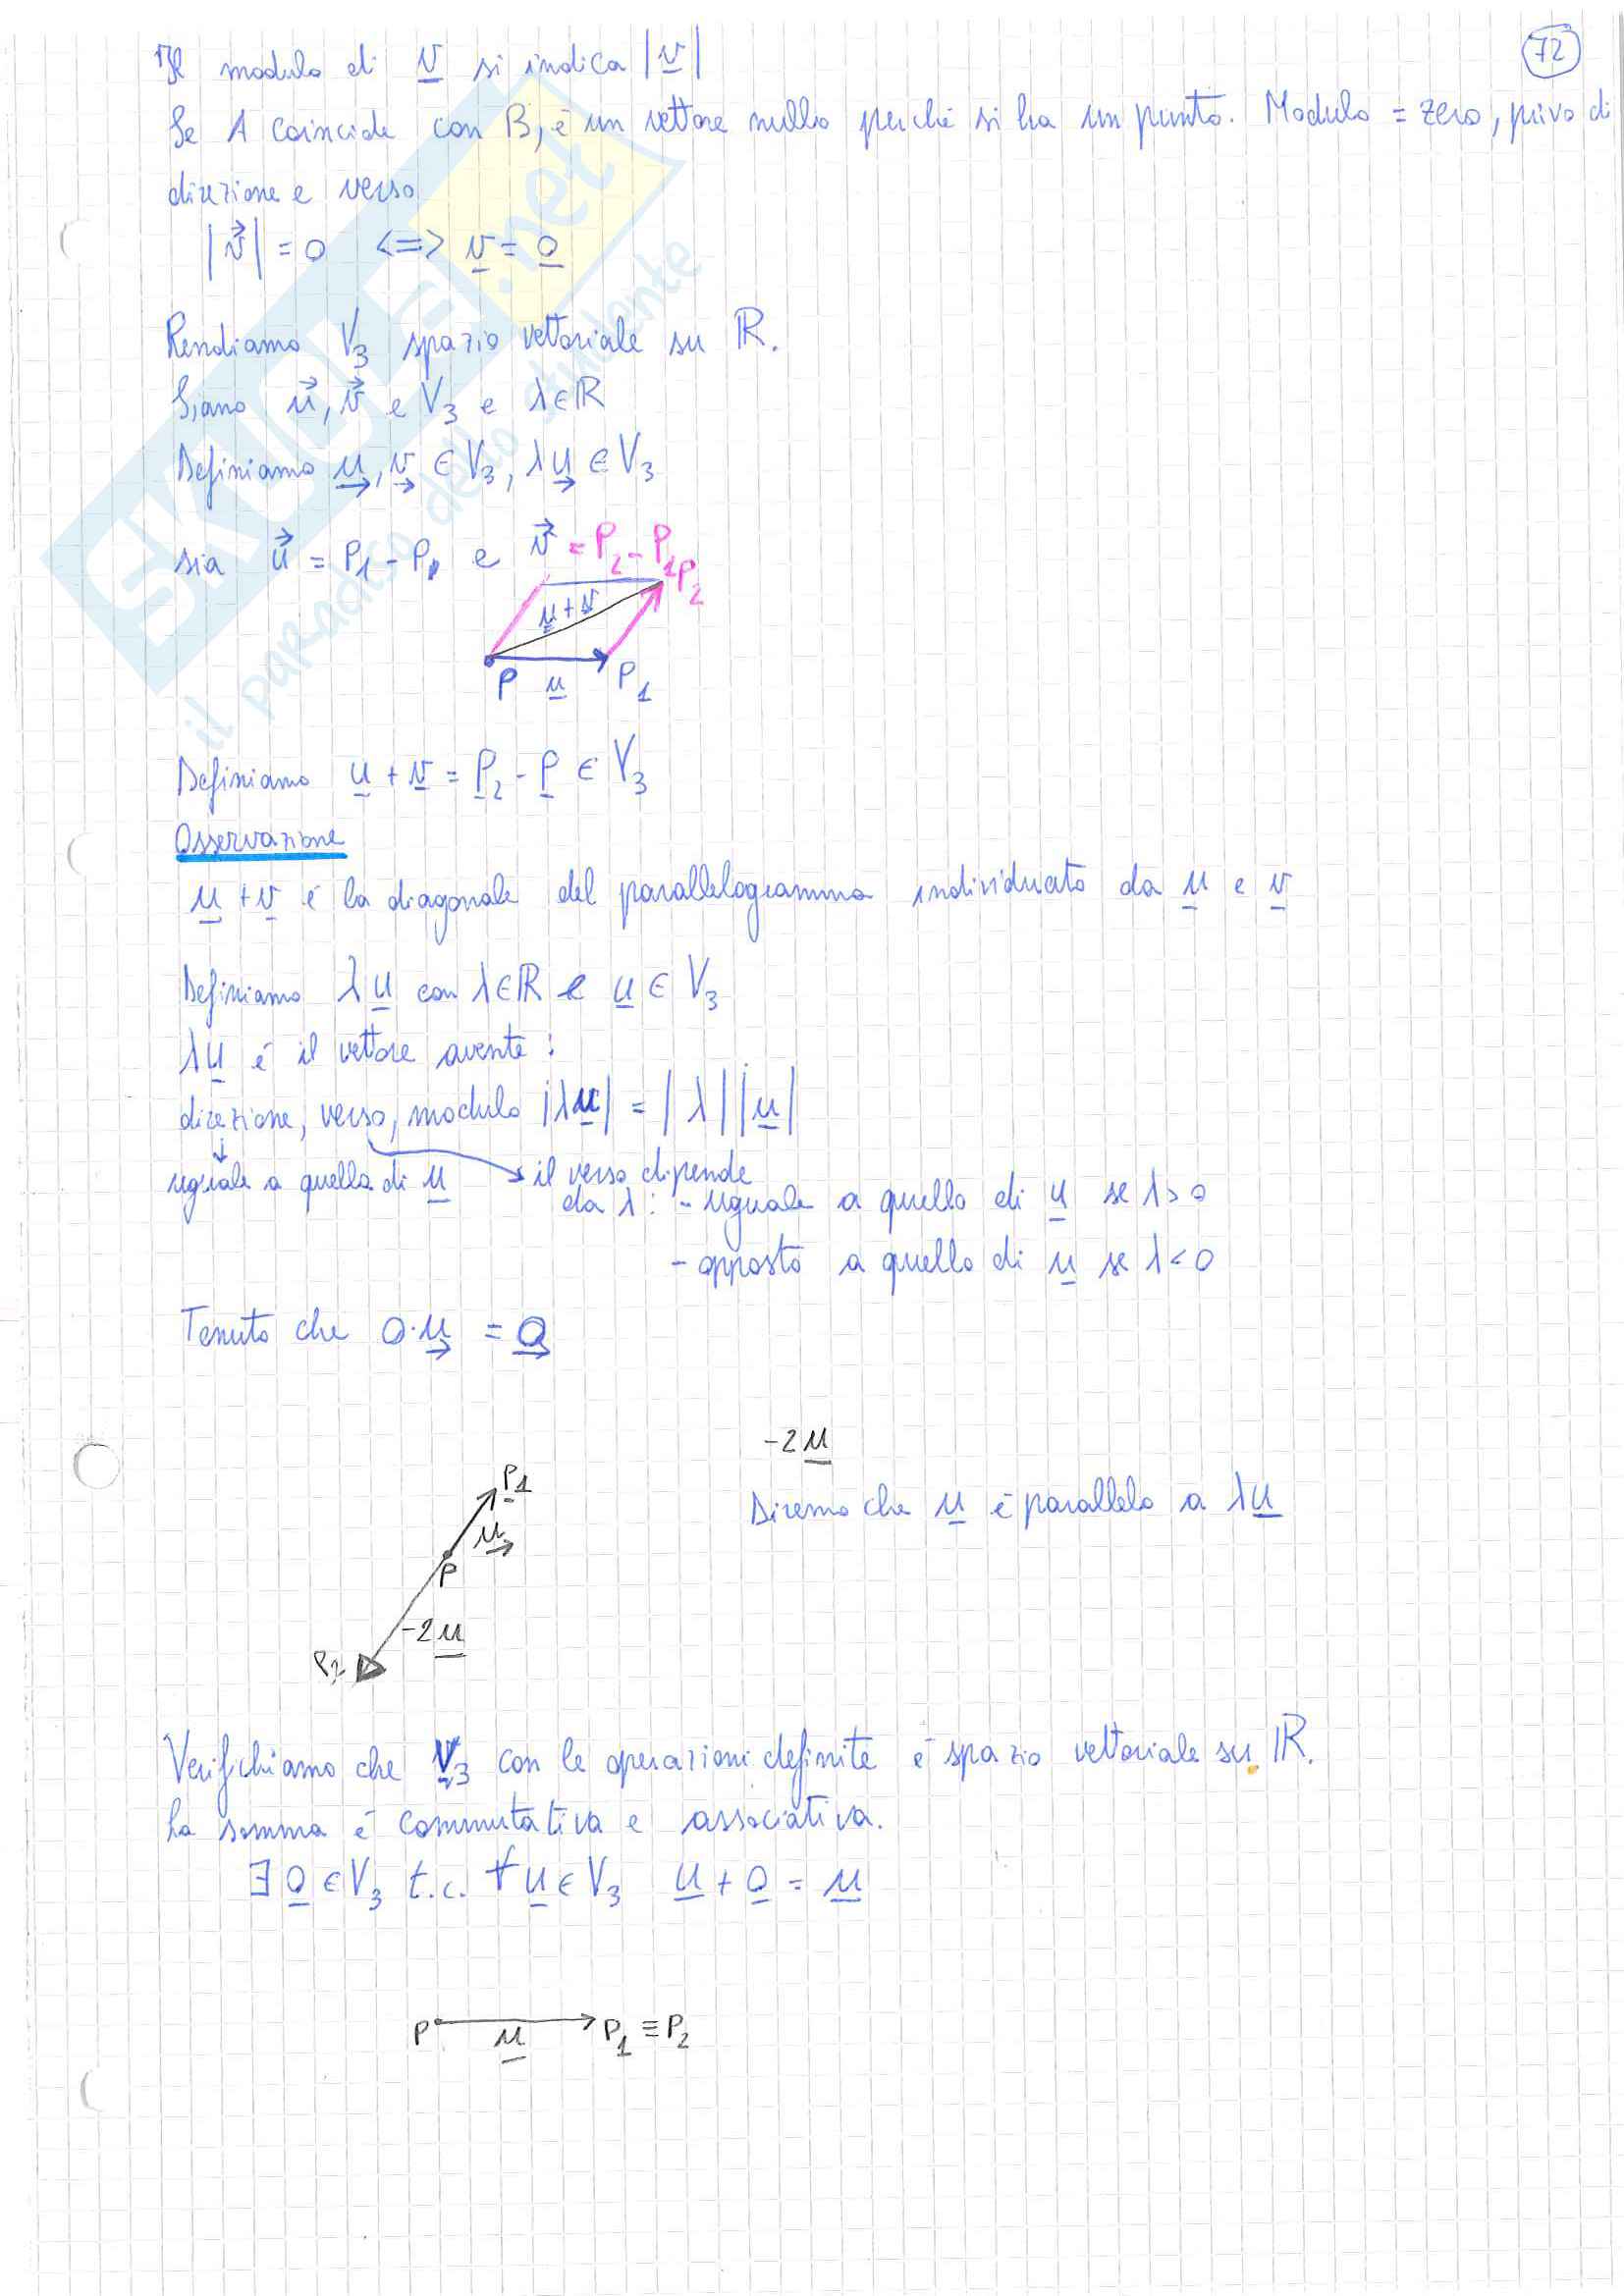 72
Il modulo di v si indica |v|
Se A coincide con B, è un vettore nullo perché si ha un punto. Modulo = zero, privo di
direzione e verso
|v⃗| = 0 <=> v = 0
Rendiamo V₃ spazio vettoriale su ℝ.
Siano u⃗, v⃗ ∈ V₃ e λ∈ℝ
Definiamo u, v ∈ V₃, λu ∈ V₃
sia u⃗ = P₁ - P, e v⃗ = P₂ - P₁
P₂
u + v
P u P₁
Definiamo u + v = P₂ - P ∈ V₃
Osservazione
u + v é la diagonale del parallelogramma individuato da u e v
Definiamo λu con λ∈ℝ e u ∈ V₃
λu é il vettore avente:
direzione, verso, modulo |λu| = |λ||u|
uguale a quella di u il verso dipende
da λ: - uguale a quello di u se λ>0
- opposto a quello di u se λ<0
Tenuto che 0·u = 0
-2u
P₁
Diremo che u é parallelo a λu
u
P
-2u
P₂
Verifichiamo che V₃ con le operazioni definite é spazio vettoriale su ℝ.
La somma é commutativa e associativa.
∃ 0 ∈ V₃ t.c. ∀ u ∈ V₃ u + 0 = u
P u P₁ ≡ P₂
SKUOLA.net
il paradiso dello studente